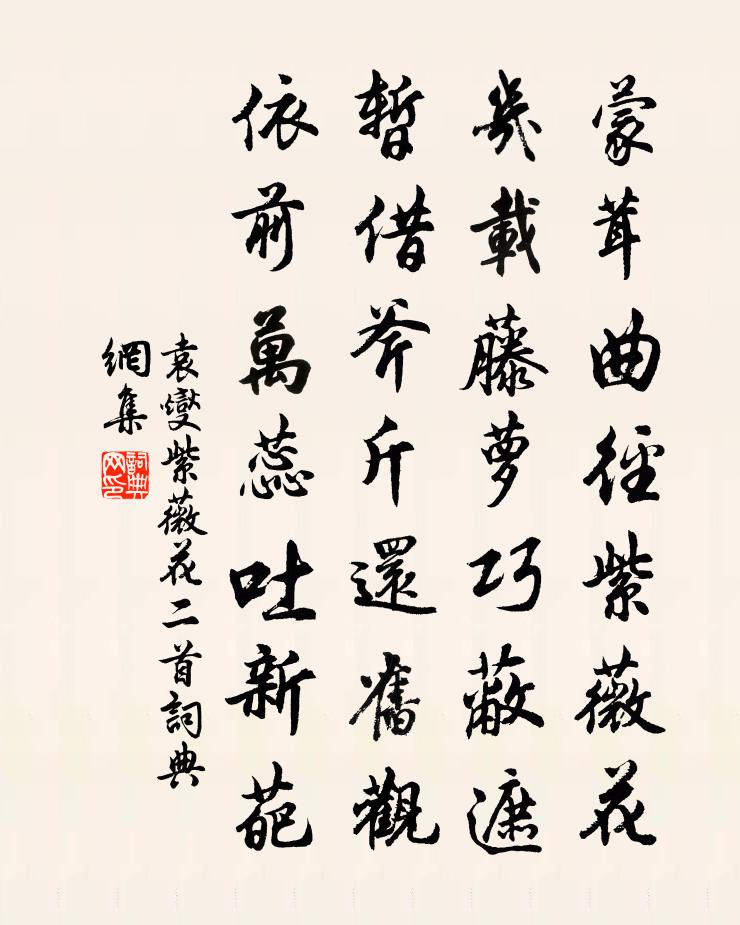 蒙茸曲徑紫薇花
幾載藤萝巧蔽遮
暫借斧斤還舊觀
依前萬蕊吐新葩
袁燮紫薇花二首詞典
網集
詞典
网印